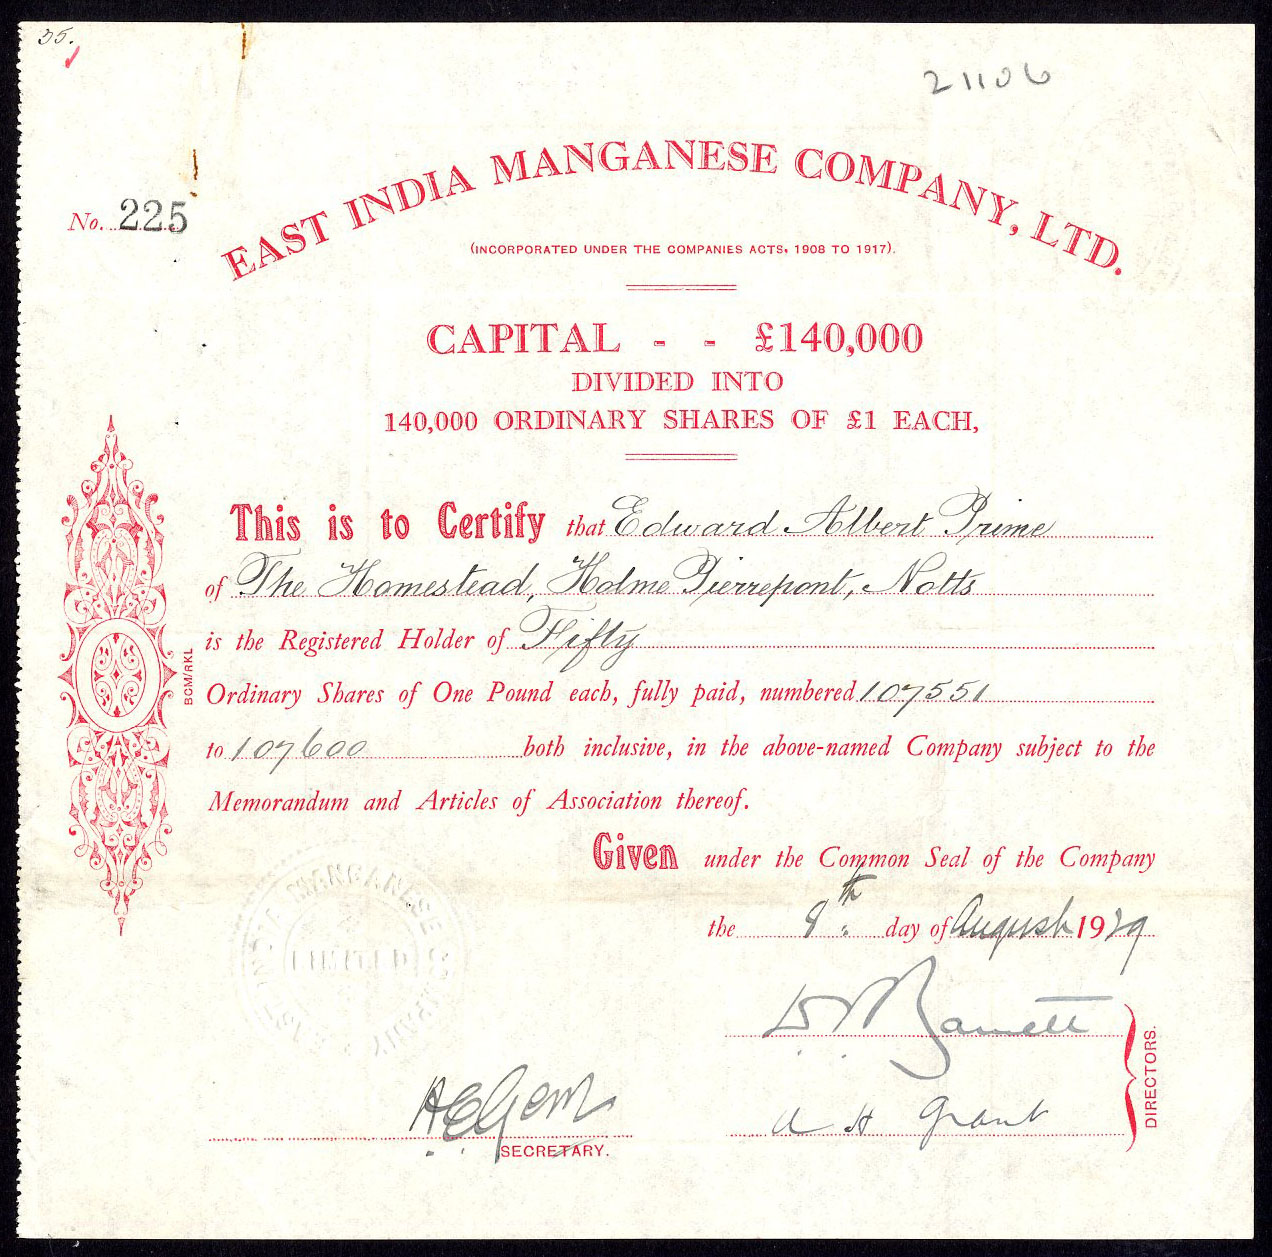 35.
21106
No. 225
EAST INDIA MANGANESE COMPANY, LTD.
(INCORPORATED UNDER THE COMPANIES ACTS, 1908 TO 1917).
CAPITAL - - £140,000
DIVIDED INTO
140,000 ORDINARY SHARES OF £1 EACH,
This is to Certify that Edward Albert Prime
of The Homestead, Holme Pierrepont, Notts
is the Registered Holder of Fifty
Ordinary Shares of One Pound each, fully paid, numbered 107551
to 107600 both inclusive, in the above-named Company subject to the
Memorandum and Articles of Association thereof.
Given under the Common Seal of the Company
the 8th day of August 1929
BCM/RKL
EAST INDIA MANGANESE COMPANY
LIMITED
Barnett
A H Grant
DIRECTORS.
SECRETARY.